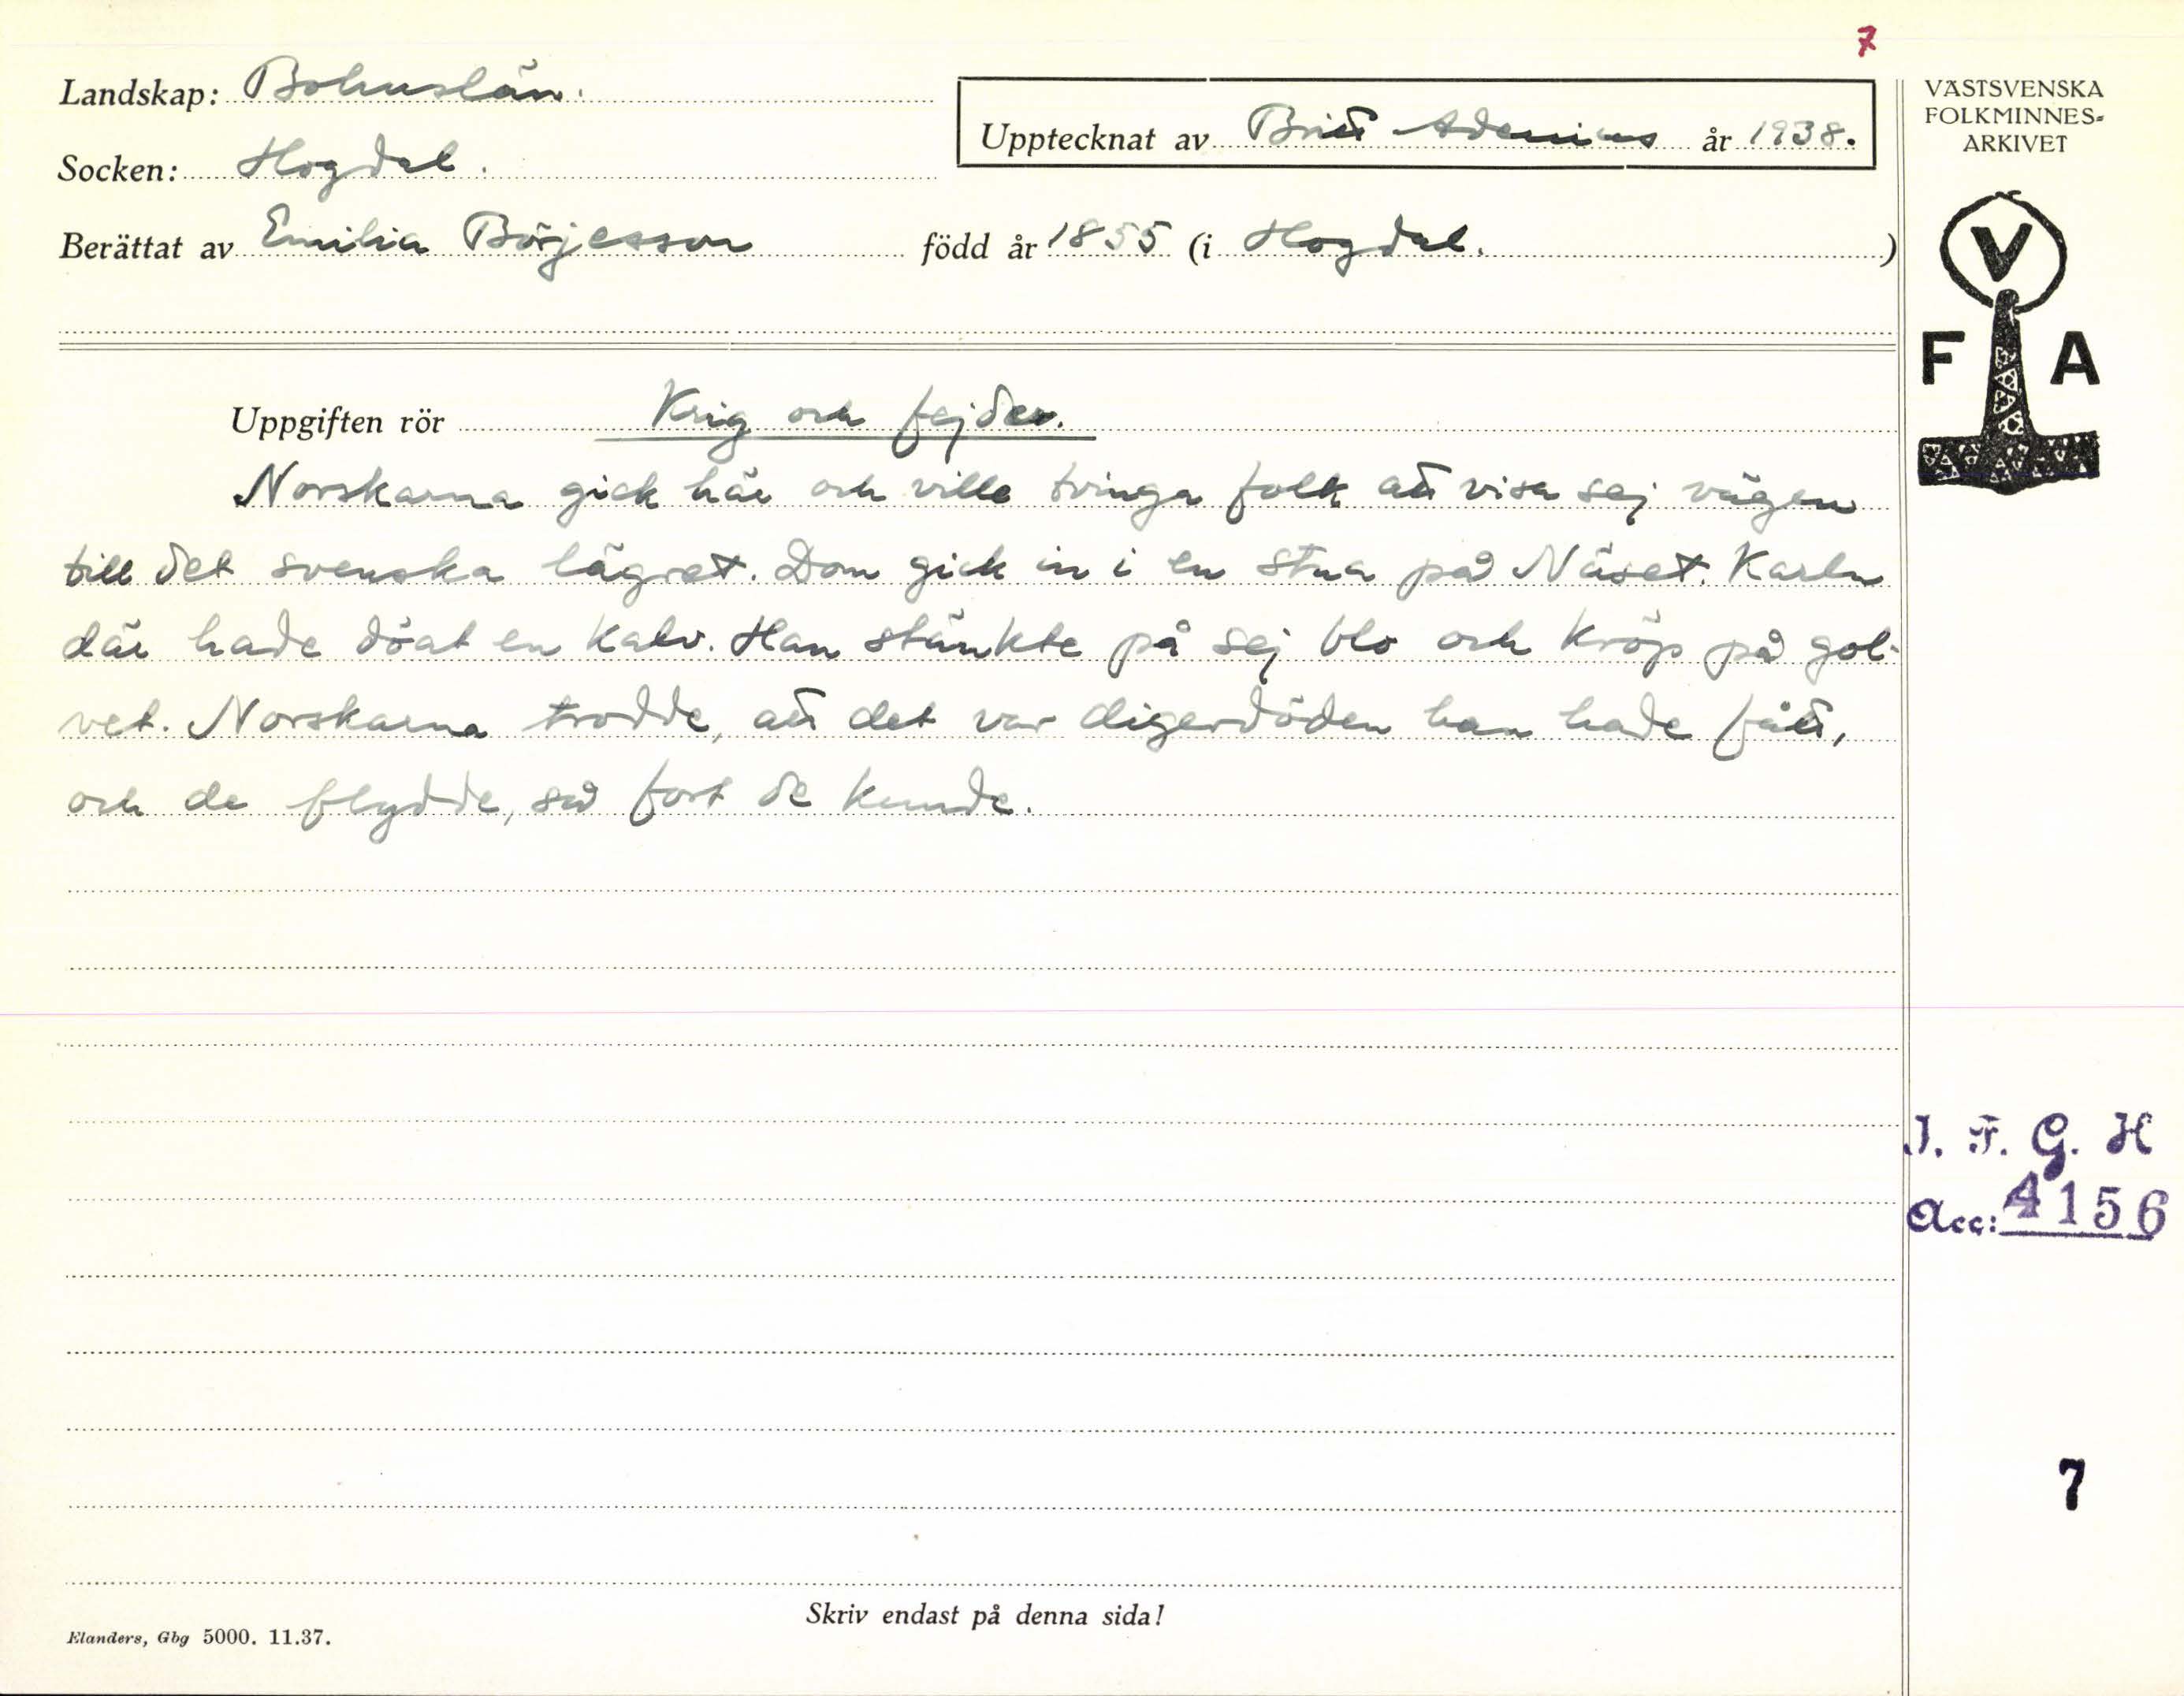 7
Landskap: Bohuslän.
Socken: Hogdal.
Berättat av Emilia Börjesson född år 1855 (i Hogdal.)
Upptecknat av Britt Adenius år 1938.
VÄSTSVENSKA
FOLKMINNES-
ARKIVET
V
F A
Uppgiften rör Krig och fejder.
Norskarna gick här och ville tvinga folk att visa sej vägen
till det svenska lägret. Dom gick in i en stua på Näset. Karln
där hade döat en kalv. Han stänkte på sej blo och kröp på gol-
vet. Norskarna trodde, att det var digerdöden han hade fått,
och de flydde, så fort de kunde.
I. F. G. H
Acc: 4156
7
Skriv endast på denna sida!
Elanders, Gbg 5000. 11.37.